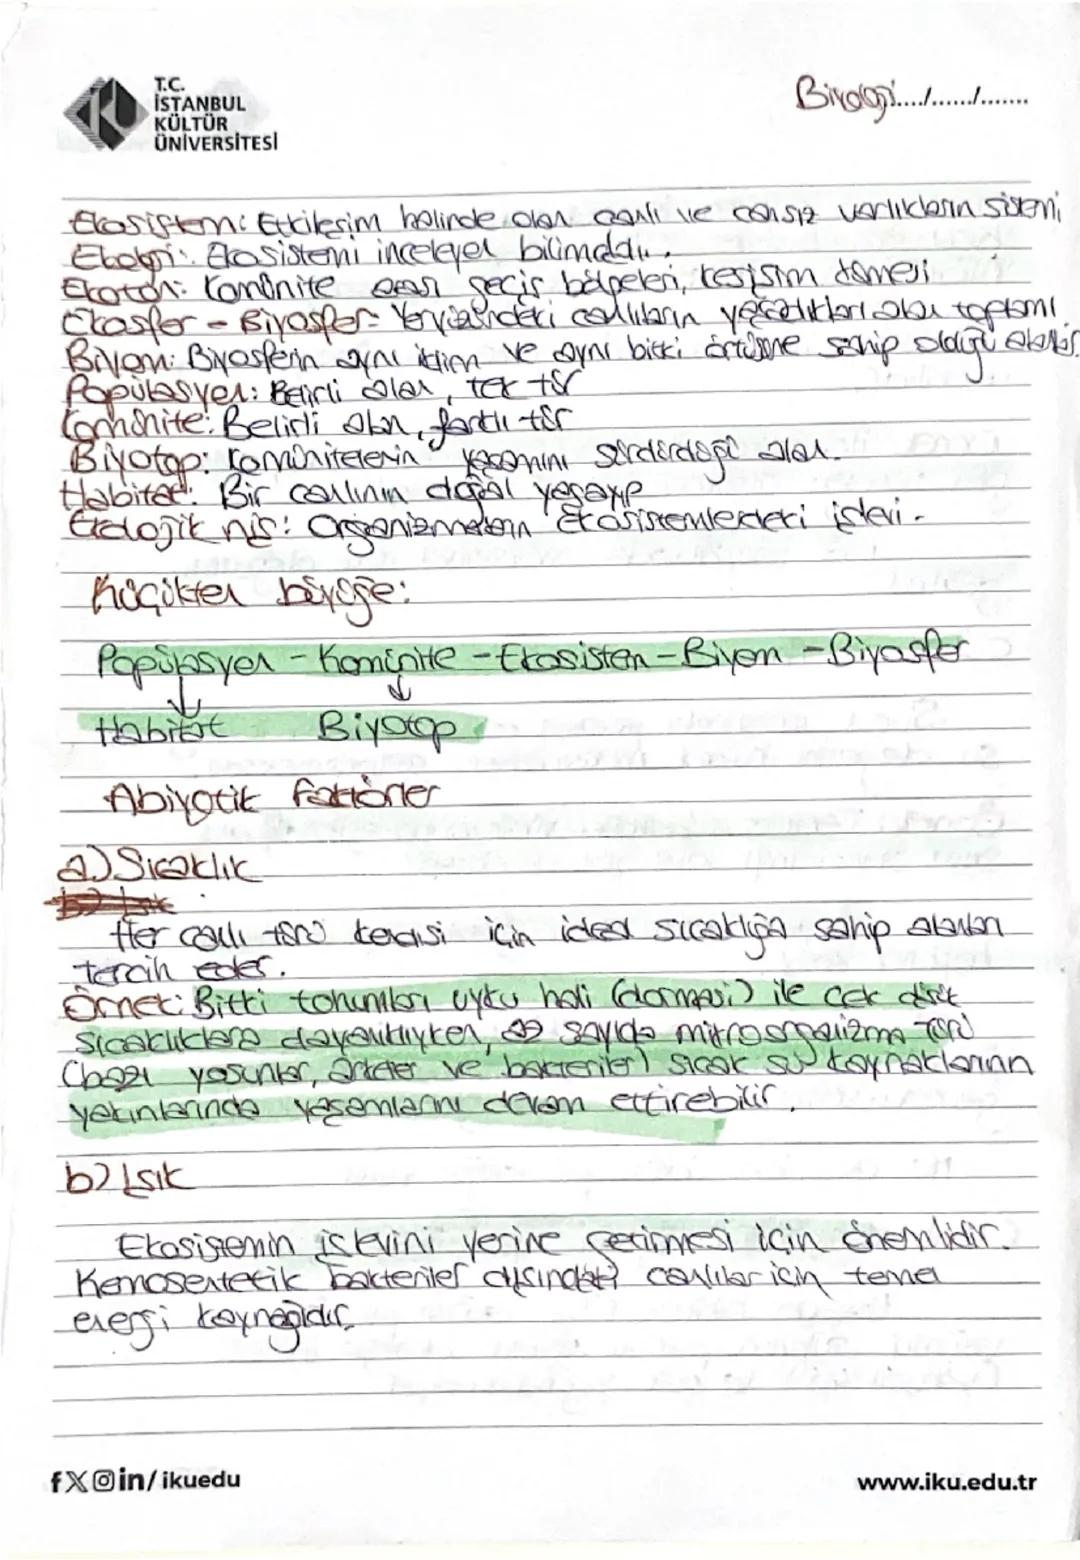 T.C.
İSTANBUL
KÜLTÜR
ÜNİVERSİTESİ
Biyoloji..../....../.......
Ekosistem: Etkileşim halinde olan canlı ve cansız varlıkların sistemi
Ekoloji: Ekosistemi inceleyen bilimdalı.
Ekoton: Komünite arası geçiş bölgeleri, kesişim kümesi
Ekosfer - Biyosfer: Yeryüzündeki canlıların yaşadıkları alan toplamı
Biyom: Biyosferin aynı iklim ve aynı bitki örtüsüne sahip olduğu alanlar.
Popülasyon: Belirli alan, tek tür
Komünite: Belirli alan, farklı tür
Biyotop: Komünitelerin yaşamını sürdürdüğü alan.
Habitat: Bir canlının doğal yaşayıp
Ekolojik niş: Organizmaların Ekosistemlerdeki işlevi.
Küçükten büyüğe:
Popülasyon - Komünite - Ekosistem - Biyom - Biyosfer
Habitat Biyotop
Abiyotik faktörler
a) Sıcaklık
b) Işık
Her canlı türü kendisi için ideal sıcaklığa sahip alanları
tercih eder.
Örnek: Bitki tohumları uyku hali (dormansi) ile çok düşük
sıcaklıklara dayanıklıyken, az sayıda mikroorganizma türü
(bazı yosunlar, arkeler ve bakteriler) sıcak su kaynaklarının
yakınlarında yaşamlarını devam ettirebilir.
b) Işık
Ekosistemin işlevini yerine getirmesi için önemlidir.
Kemosentetik bakteriler dışındaki canlılar için temel
enerji kaynağıdır.
f X in / ikuedu
www.iku.edu.tr